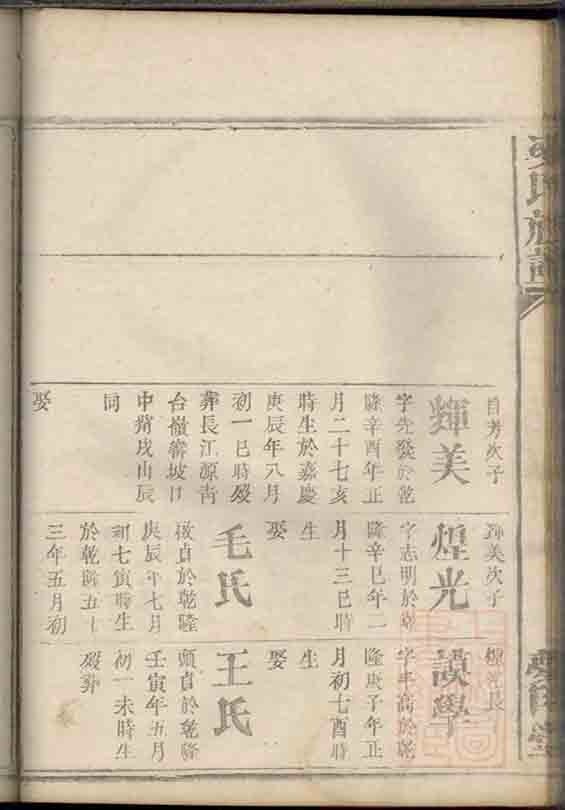 氏族譜
自芳次子
輝美
字先發於乾
隆辛酉年正
月二十七亥
時生於嘉慶
庚辰年八月
初一巳時殁
葬長江源青
台嶺 坡口
中 戌山辰
同
娶
輝美次子
煌光
字志明於乾
隆辛巳年二
月十三巳時
生
娶
毛氏
淑貞於乾隆
庚辰年七月
初七寅時生
於乾隆五十
三年五月初
煌光長
謨學
字 高於乾
隆庚子年正
月初七酉時
生
娶
王氏
順貞於乾隆
壬寅年五月
初一未時生
殁葬
堂